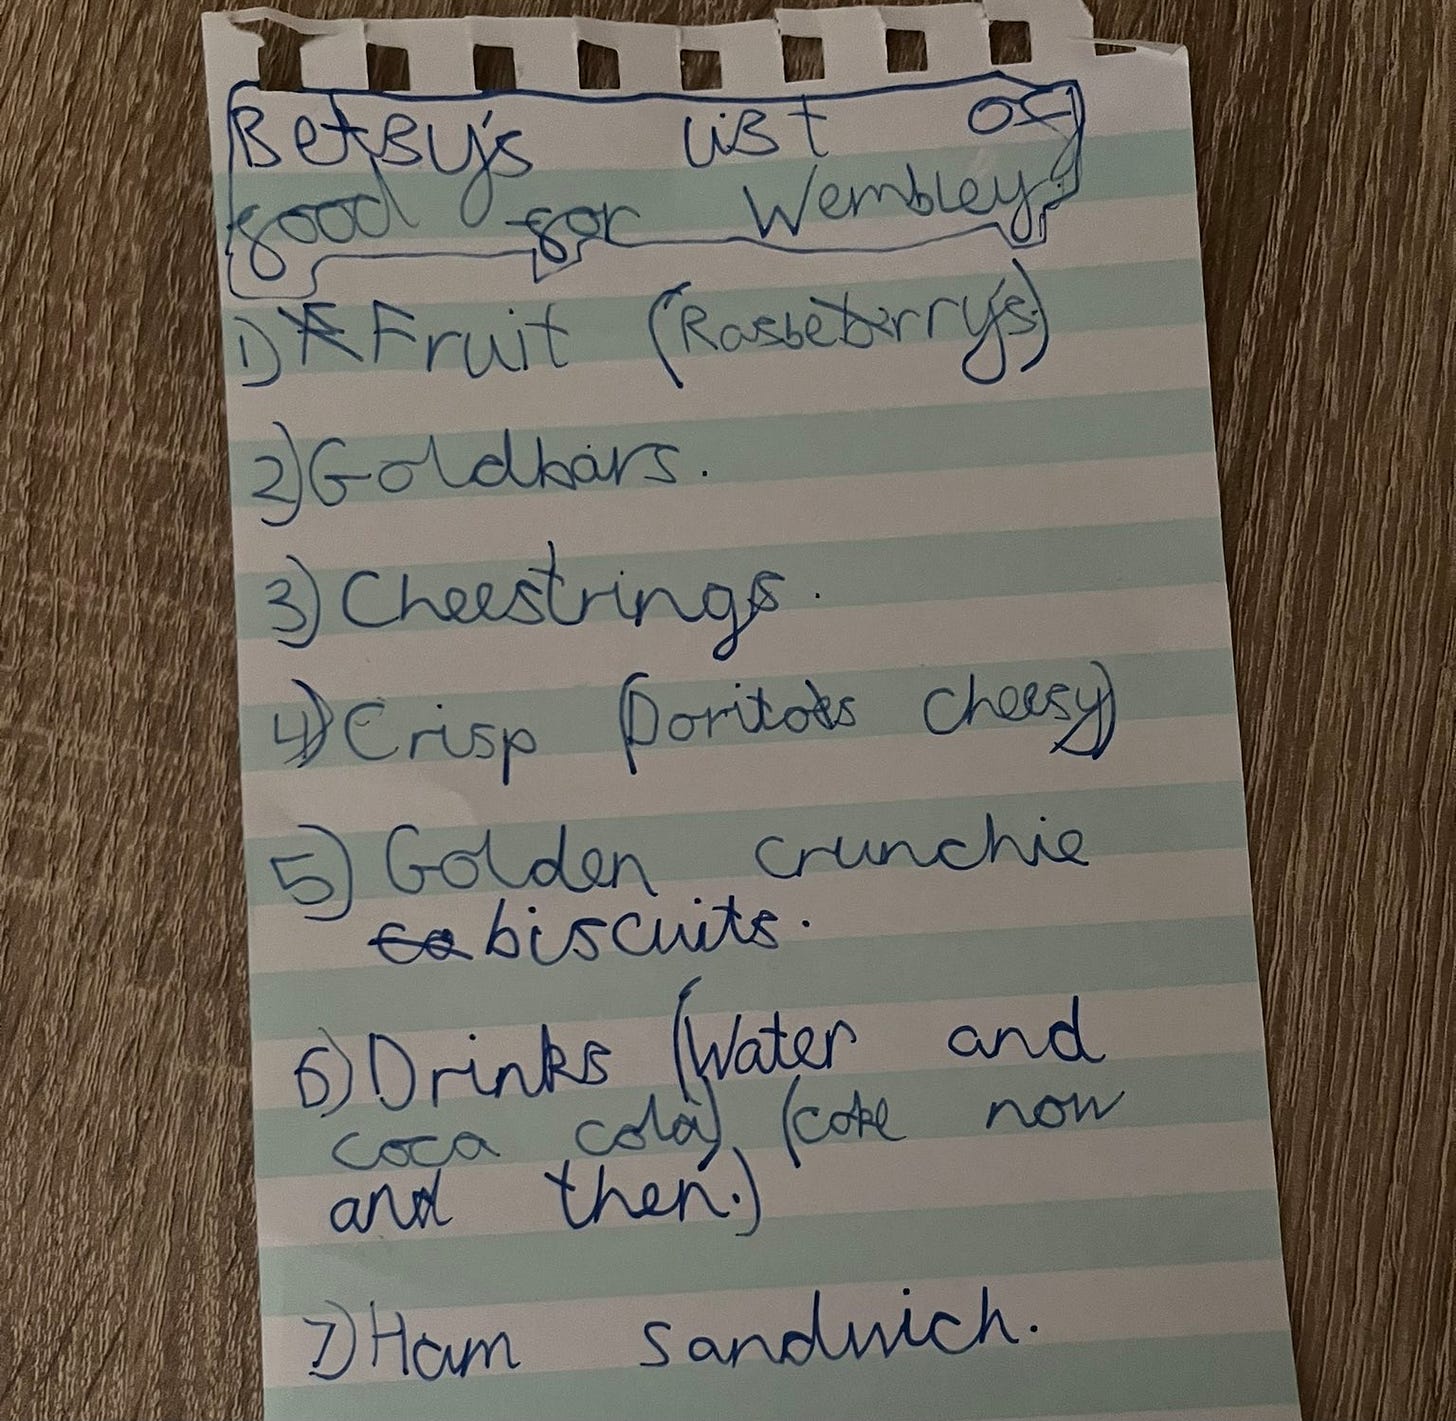 Betsy's list of
good for Wembley.
1) Fruit (Rasbeberry's)
2) Goldbars.
3) Cheestrings.
4) Crisp (Doritos cheesy)
5) Golden crunchie
biscuits.
6) Drinks (Water and
coca cola) (coke now
and then.)
7) Ham sandwich.